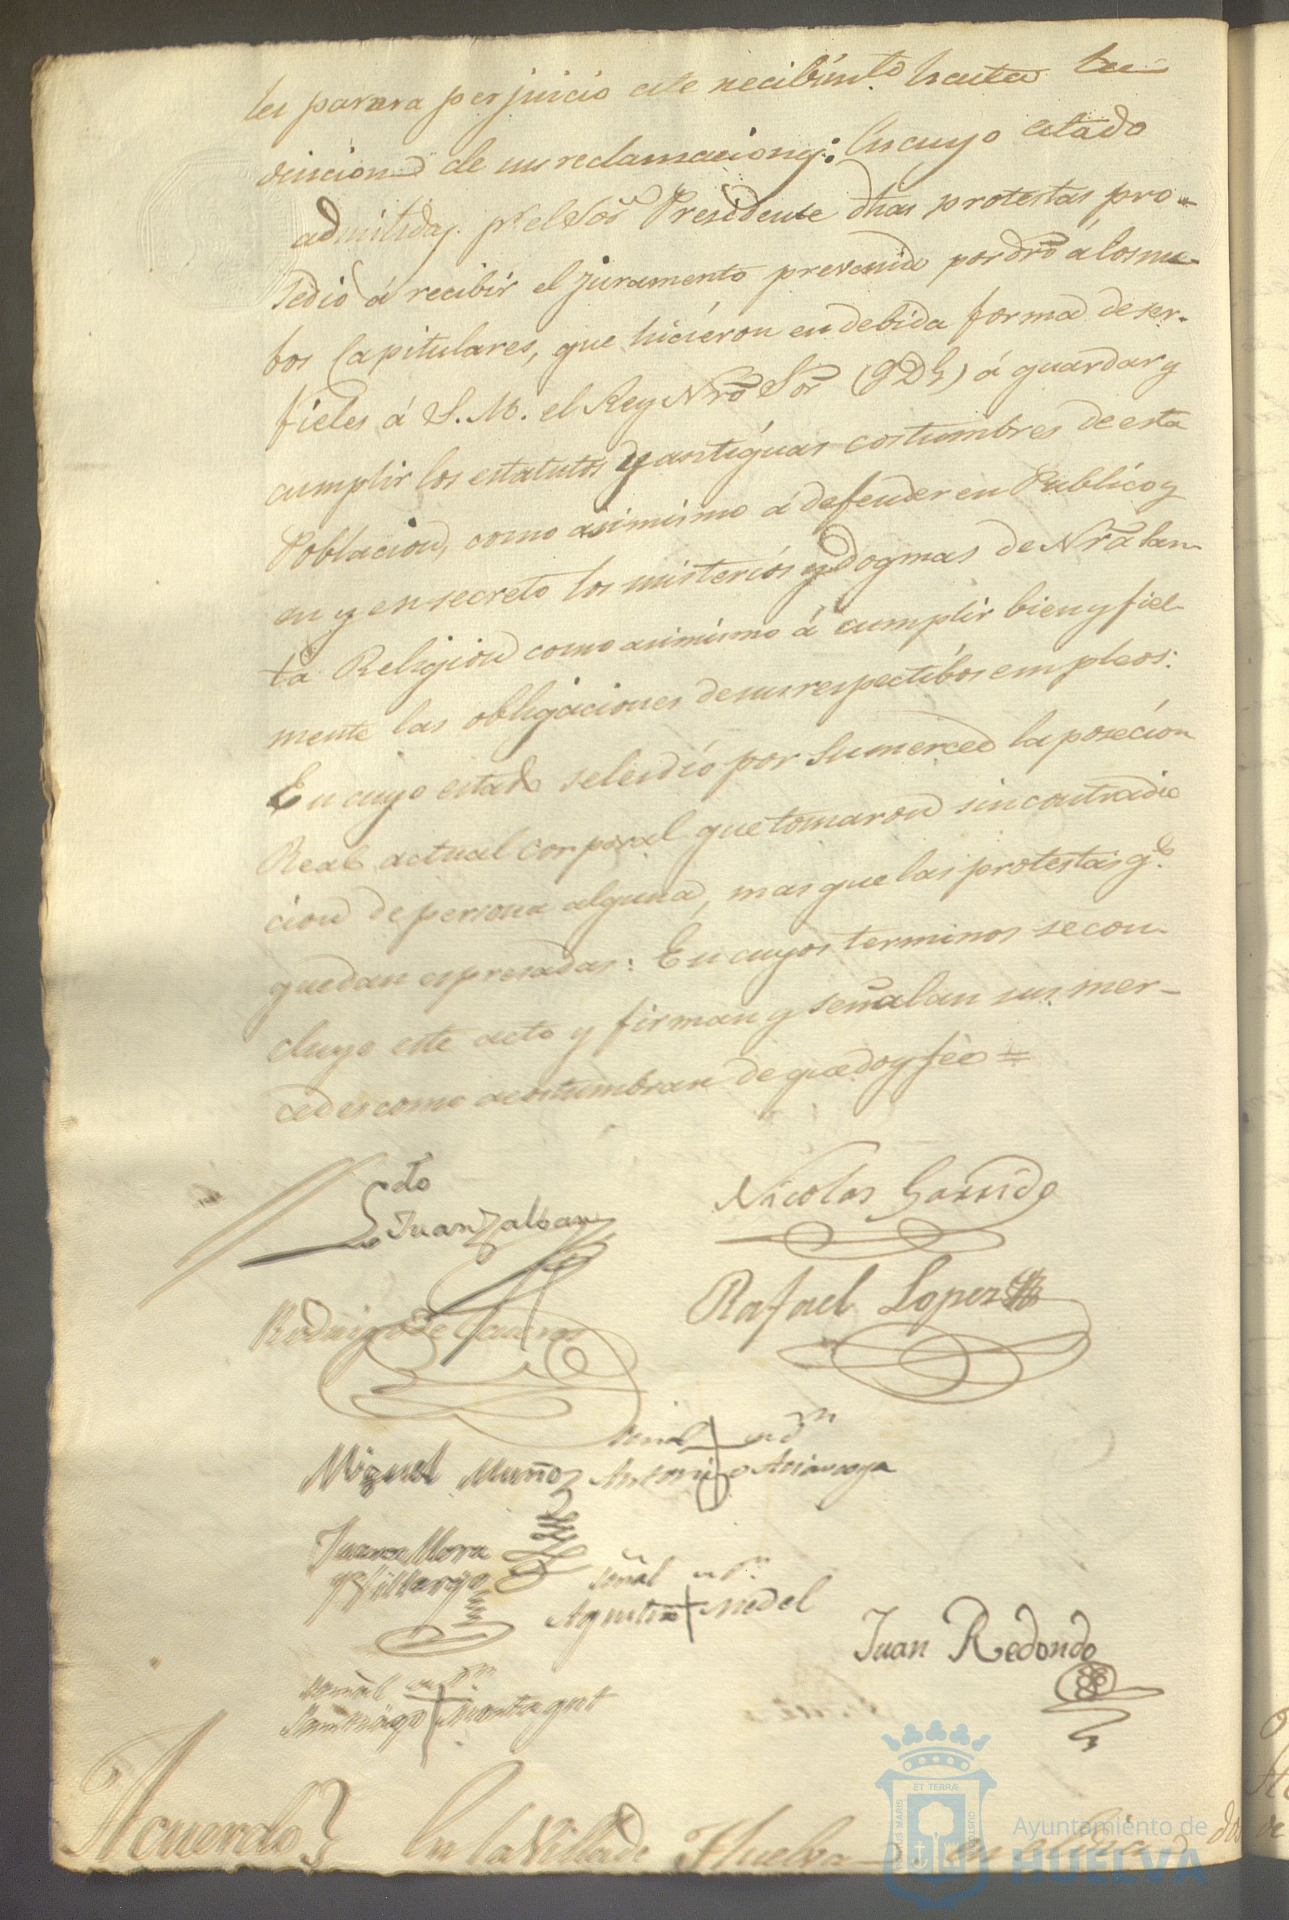 les parara perjuicio este recibim.to hasta la
dicision de sus reclamaciones: En cuyo estado
admitidas p.r el Sor. Presidente dhas protestas pro-
sedió á recibir el juramento prevenido por dro á los nue-
bos Capitulares, que hicieron en debida forma de ser
fieles á S. M. el Rey Nro Sor (q D g) á guardar y
cumplir los estatutos y antíguas costumbres de esta
Poblacion, como asimismo á defender en Publíco y
en y en secreto los misteríos y dogmas de Nra San-
ta Religion como asimismo á cumplir bien y fiel-
mente las obligaciones de sus respectibos empleos:
En cuyo estado se les dió por Su merced la poseción
Real actual corporal que tomaron sin contradic
cion de persona alguna, mas que las protestas q.e
quedan espresadas: En cuyos terminos se con-
cluyo este acto y firman y señalan sus mer-
cedes como acostumbran de que doy fée =
Juan Zalban
Nicolas Garrido
Rodrigo de
Rafael Lopez
señal
Miguel Muñoz Antonio
Juan Mora
y Villarejo señal
Agustin Medel
Juan Redondo
señal
Santiago Montagut
Acuerdo } En la Villa de Huelva
ET TERRÆ
Ayuntamiento de
HUELVA